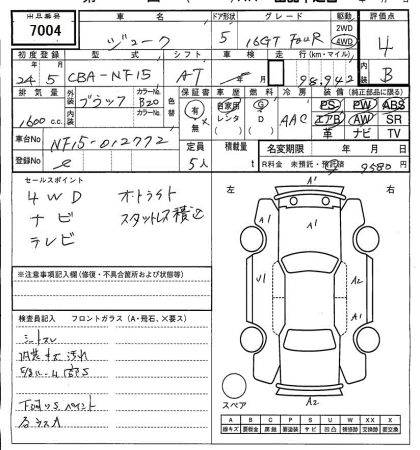 出品番号 車名 ドア形状 グレード 駆動 評価点
7004 ジューク 5 16GT FOUR 2WD 4WD 4
初度登録 型式 シフト 車検 走行(km・マイル) 内装
24年5月 CBA-NF15 AT 年 月 98,942 B
排気量 外装 カラーNo. 色替 保証書 車歴 燃料 冷房 装備(純正部品に限る)
1600c.c. ブラック B20 有 無 自家用 レンタ G D AAC PS PW ABS
エアB AW SR
革 ナビ TV
車台No. NF15-012772 定員 積載量 名変期限 年 月 日
登録No. 5人 t R料金 未預託・預託済 9580円
セールスポイント
4WD オートライト
ナビ スタットレス積込
テレビ
左 右
A1
A1 A1
U1 A2
A1
A2
スペア
※注意事項記入欄(修復・不具合箇所および状態等)
検査員記入 フロントガラス(A・飛石、×要ス)
シートスレ
内装キズ 汚れ
A B C P S U W X XX
線キズ 要板金 腐蝕 要塗装 サビ 凹凸 補修跡 交換跡 要交換